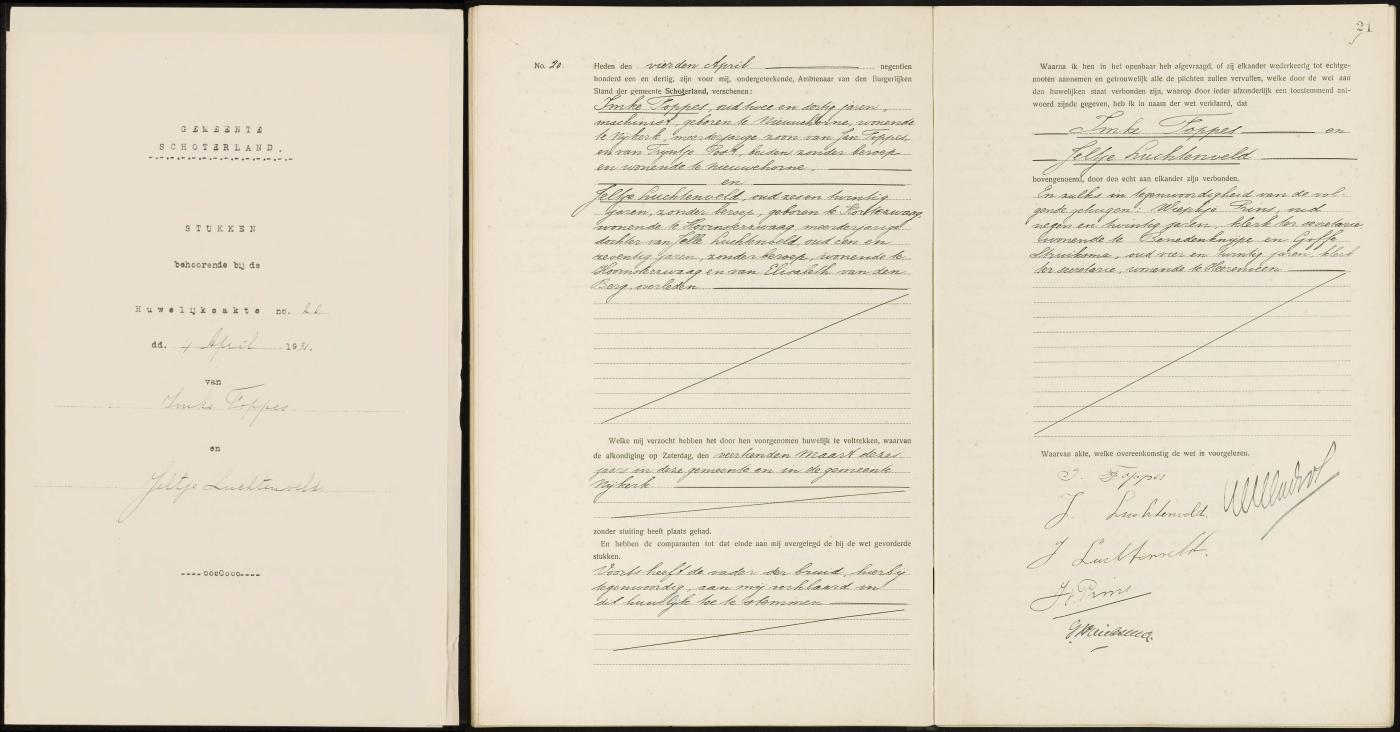 GEMEENTE
SCHOTERLAND.
STUKKEN
behoorende bij de
Huwelijksakte no. 20
dd. 4 April 1931.
van
Imke Foppes
en
Jeltje Luchtenveld
----oooOooo----
No. 20.
Heden den vierden April negentien
honderd een en dertig, zijn voor mij, ondergeteekende, Ambtenaar van den Burgerlijken
Stand der gemeente Schoterland, verschenen:
Imke Foppes, oud twee en dertig jaren,
machinist, geboren te Nieuwehorne, wonende
te Nijkerk, meerderjarige zoon van Jan Foppes,
en van Trijntje Post, beiden zonder beroep
en wonende te Nieuwehorne.
en
Jeltje Luchtenveld, oud zes en twintig
jaren, zonder beroep, geboren te Kortezwaag,
wonende te Hoornsterzwaag, meerderjarige
dochter van Jelle Luchtenveld, oud een en
zeventig jaren, zonder beroep, wonende te
Hoornsterzwaag en van Elisabeth van den
Berg, overleden
Welke mij verzocht hebben het door hen voorgenomen huwelijk te voltrekken, waarvan
de afkondiging op Zaterdag, den veertienden Maart dezes
jaars in deze gemeente en in de gemeente
Nijkerk
zonder stuiting heeft plaats gehad.
En hebben de comparanten tot dat einde aan mij overgelegd de bij de wet gevorderde
stukken.
Voorts heeft de vader der bruid, hierbij
tegenwoordig, aan mij verklaard in
dit huwelijk toe te stemmen
21
Waarna ik hen in het openbaar heb afgevraagd, of zij elkander wederkeerig tot echtge-
nooten aannemen en getrouwelijk alle de plichten zullen vervullen, welke door de wet aan
den huwelijken staat verbonden zijn, waarop door ieder afzonderlijk een toestemmend ant-
woord zijnde gegeven, heb ik in naam der wet verklaard, dat
Imke Foppes en
Jeltje Luchtenveld
bovengenoemd, door den echt aan elkander zijn verbonden.
En zulks in tegenwoordigheid van de vol-
gende getuigen: Wiepkje Prins, oud
negen en twintig jaren, klerk ter secretarie,
wonende te Benedenknijpe en Goffe
oud vier en twintig jaren, klerk
ter secretarie, wonende te Heerenveen
Waarvan akte, welke overeenkomstig de wet is voorgelezen.
I. Foppes
J. Luchtenveld.
J Luchtenveld.
Prins